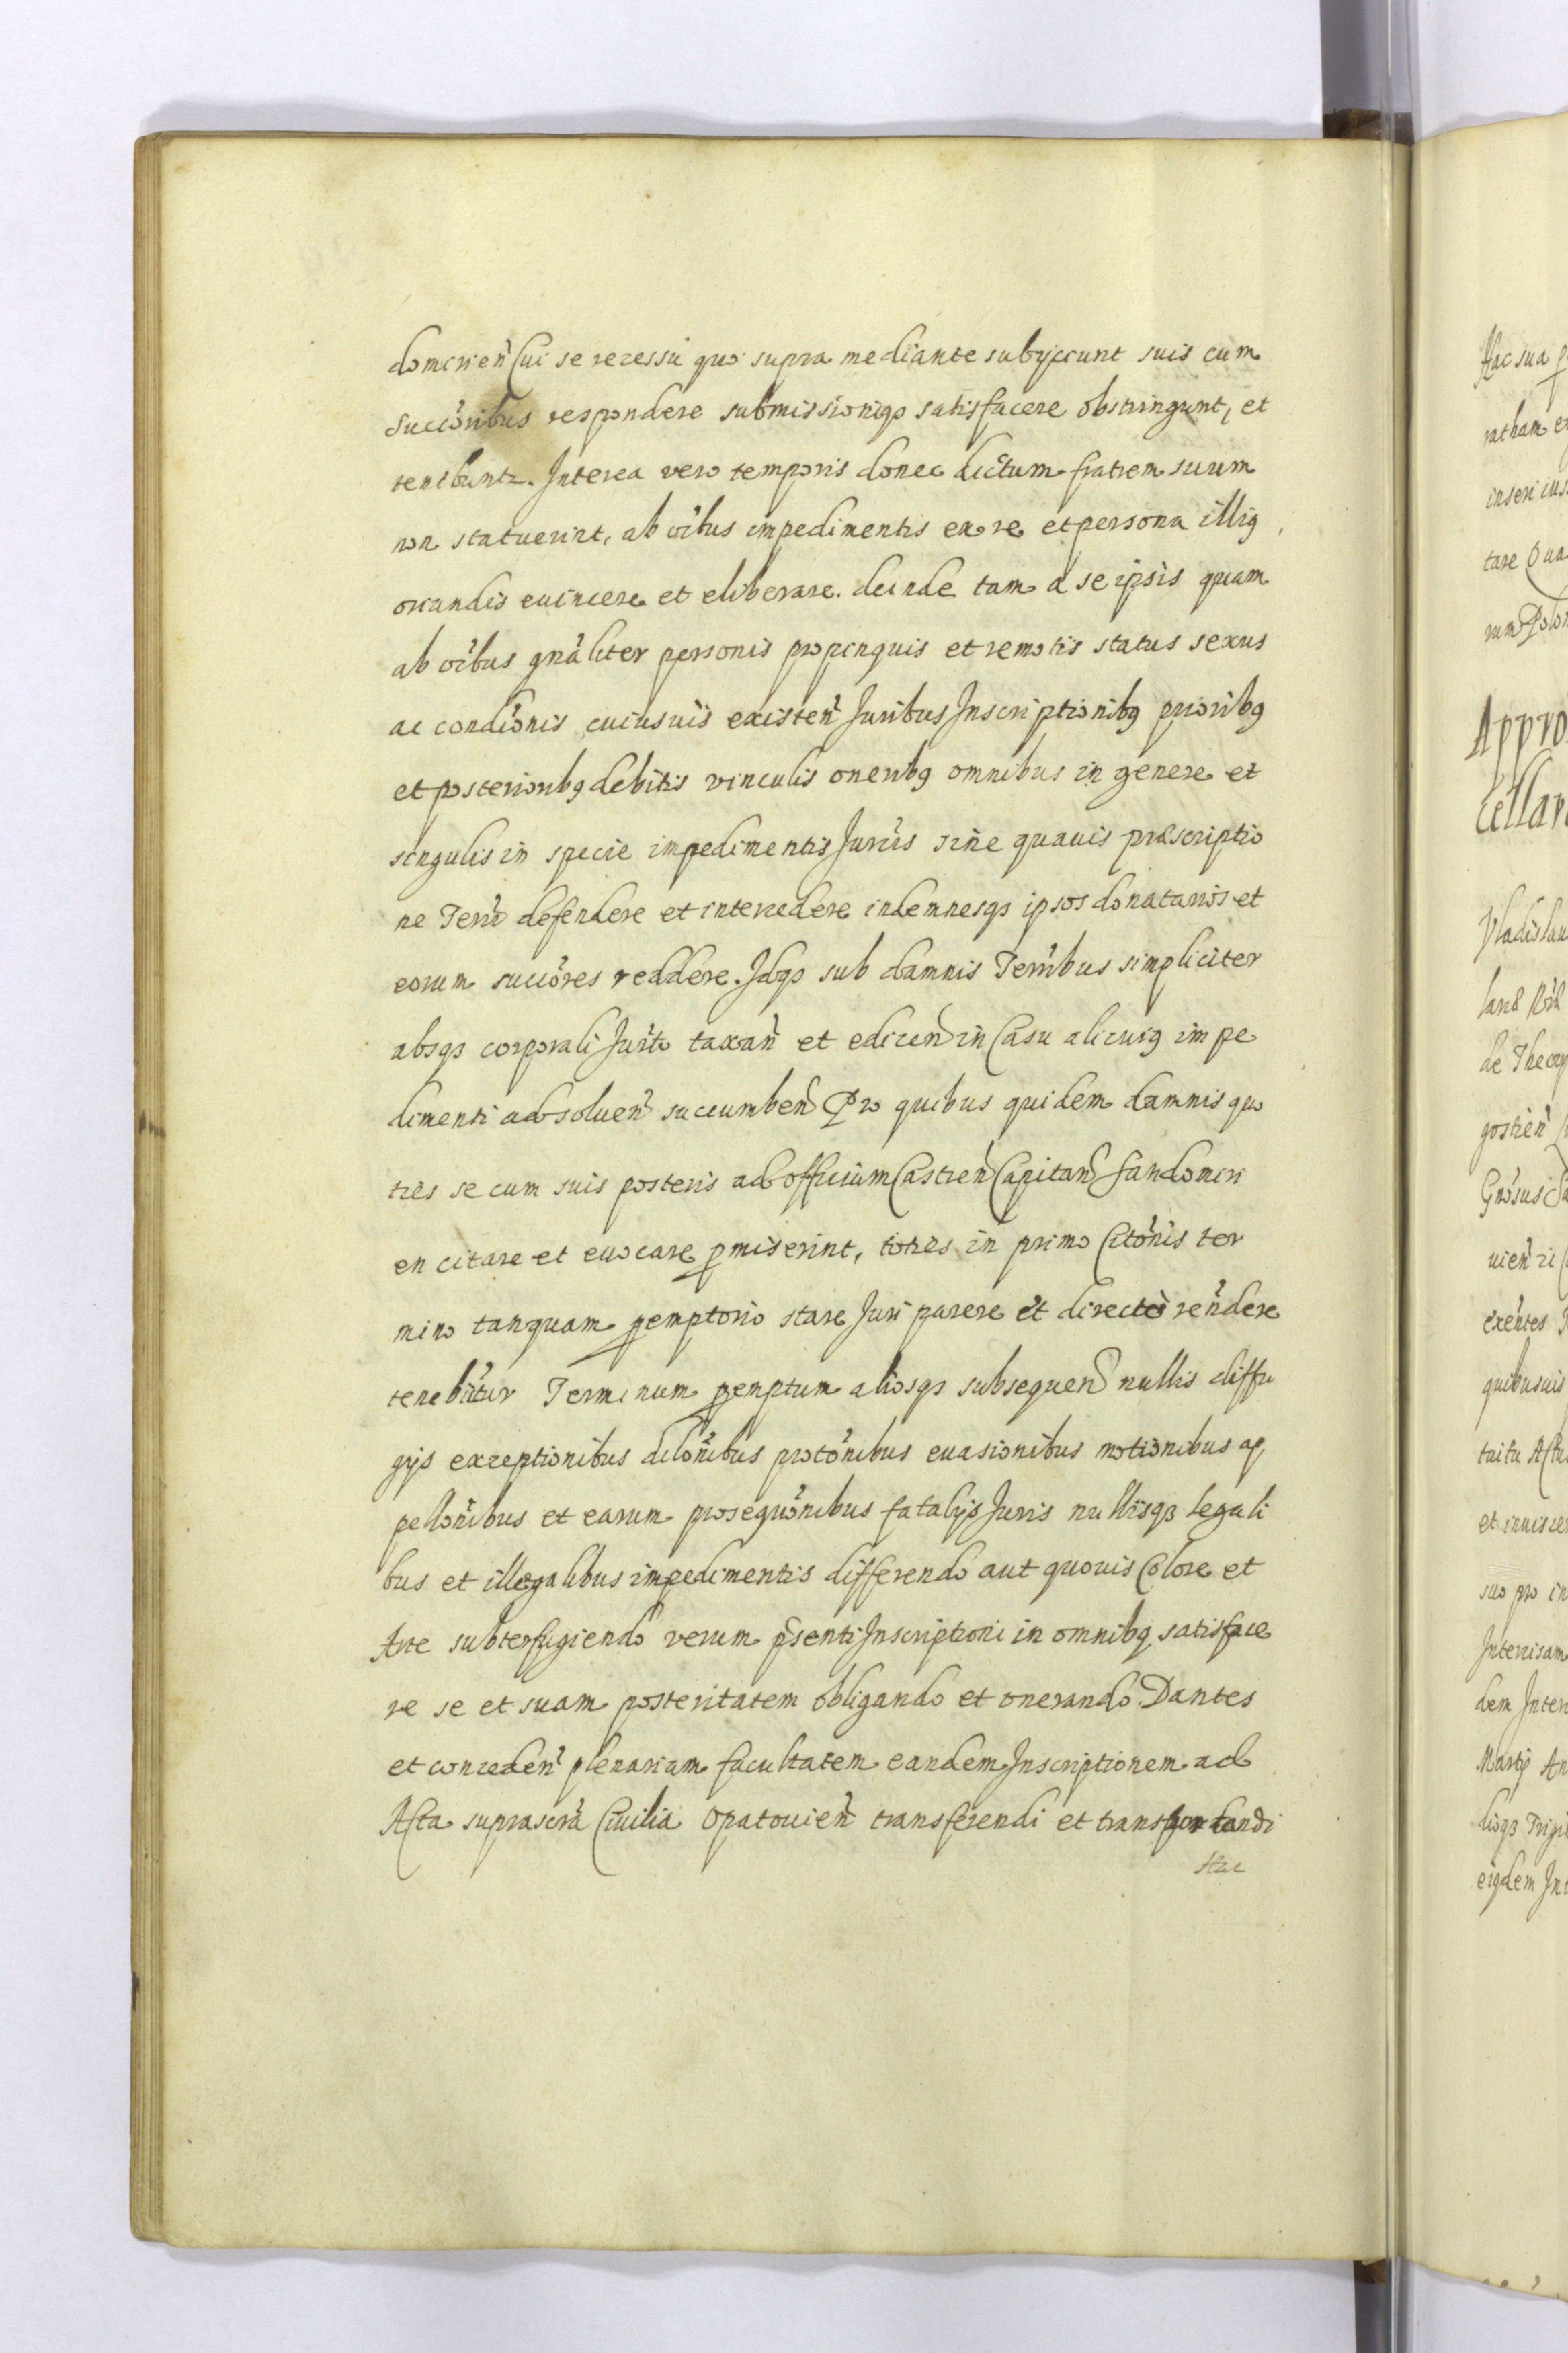 domirieñ Cui se recessu quo supra mediante subijciunt suis cum
succõribus respondere submissioniqз satisfacere obstringunt, et
tenebuntr. Interea vero temporis donec dictum fratrem suum
non statuerint, ab oĩbus impedimentis ex re et persona illiꝰ
oriandis evincere et eliberare. deinde tam a se ipsis quam
ab oĩbus gnãliter personis propinquis et remotis status sexus
ac condiõnis cuiusuis existeñ Juribus Inscriptionibꝰ prioribꝰ
et posterioribꝰ debitis vinculis oneribꝰ omnibus in genere et
singulis in specie impedimentis Juriũs sine quauis præscriptio
ne Terrĩ defendere et intercedere indemnesqз ipsos donatarios et
eorum succõres reddere. Idqз sub damnis Terrĩbus simpliciter
absqз corporali Jurĩto taxañ et ediceñ in Casu alicuiꝰ impe
dimenti adsolueñ succumbeñ Pro quibus quidem damnis quo
ties se cum suis posteris ad officium Castreñ Capitañ Sandomiri
en citare et euocare ꝑmiserint, toties in primo Citõnis ter
mino tanquam ꝑemptorio stare Juri parere et directe reñdere
tenebũtur Terminum ꝑemptum aliosqз subsequeñ nullis diffu
gijs exceptionibus dilõnibus protõnibus euasionibus motionibus ap
pellõnibus et earum prosequõnibus fatalijs Juris nullisqз legali
bus et illegalibus impedimentis differendo aut quouis Colore et
Arte subterfugiendo verum p̃senti Inscriptioni in omnibꝰ satisface
re se et suam posteritatem obligando et onerando. Dantes
et concedeñ plenariam facultatem eandem Inscriptionem ad
Acta suprascrã Ciuilia Opatouieñ transferendi et transportandi
Hac
Hac sua
ratham
inseri
tare Qua
rum Polo
Appro
Cellar
Vladislau
land
de
gostieñ
Grõsus
uieñ
exeñtes
quibusuis
tuitu
et
suo pro in
dem
Martij